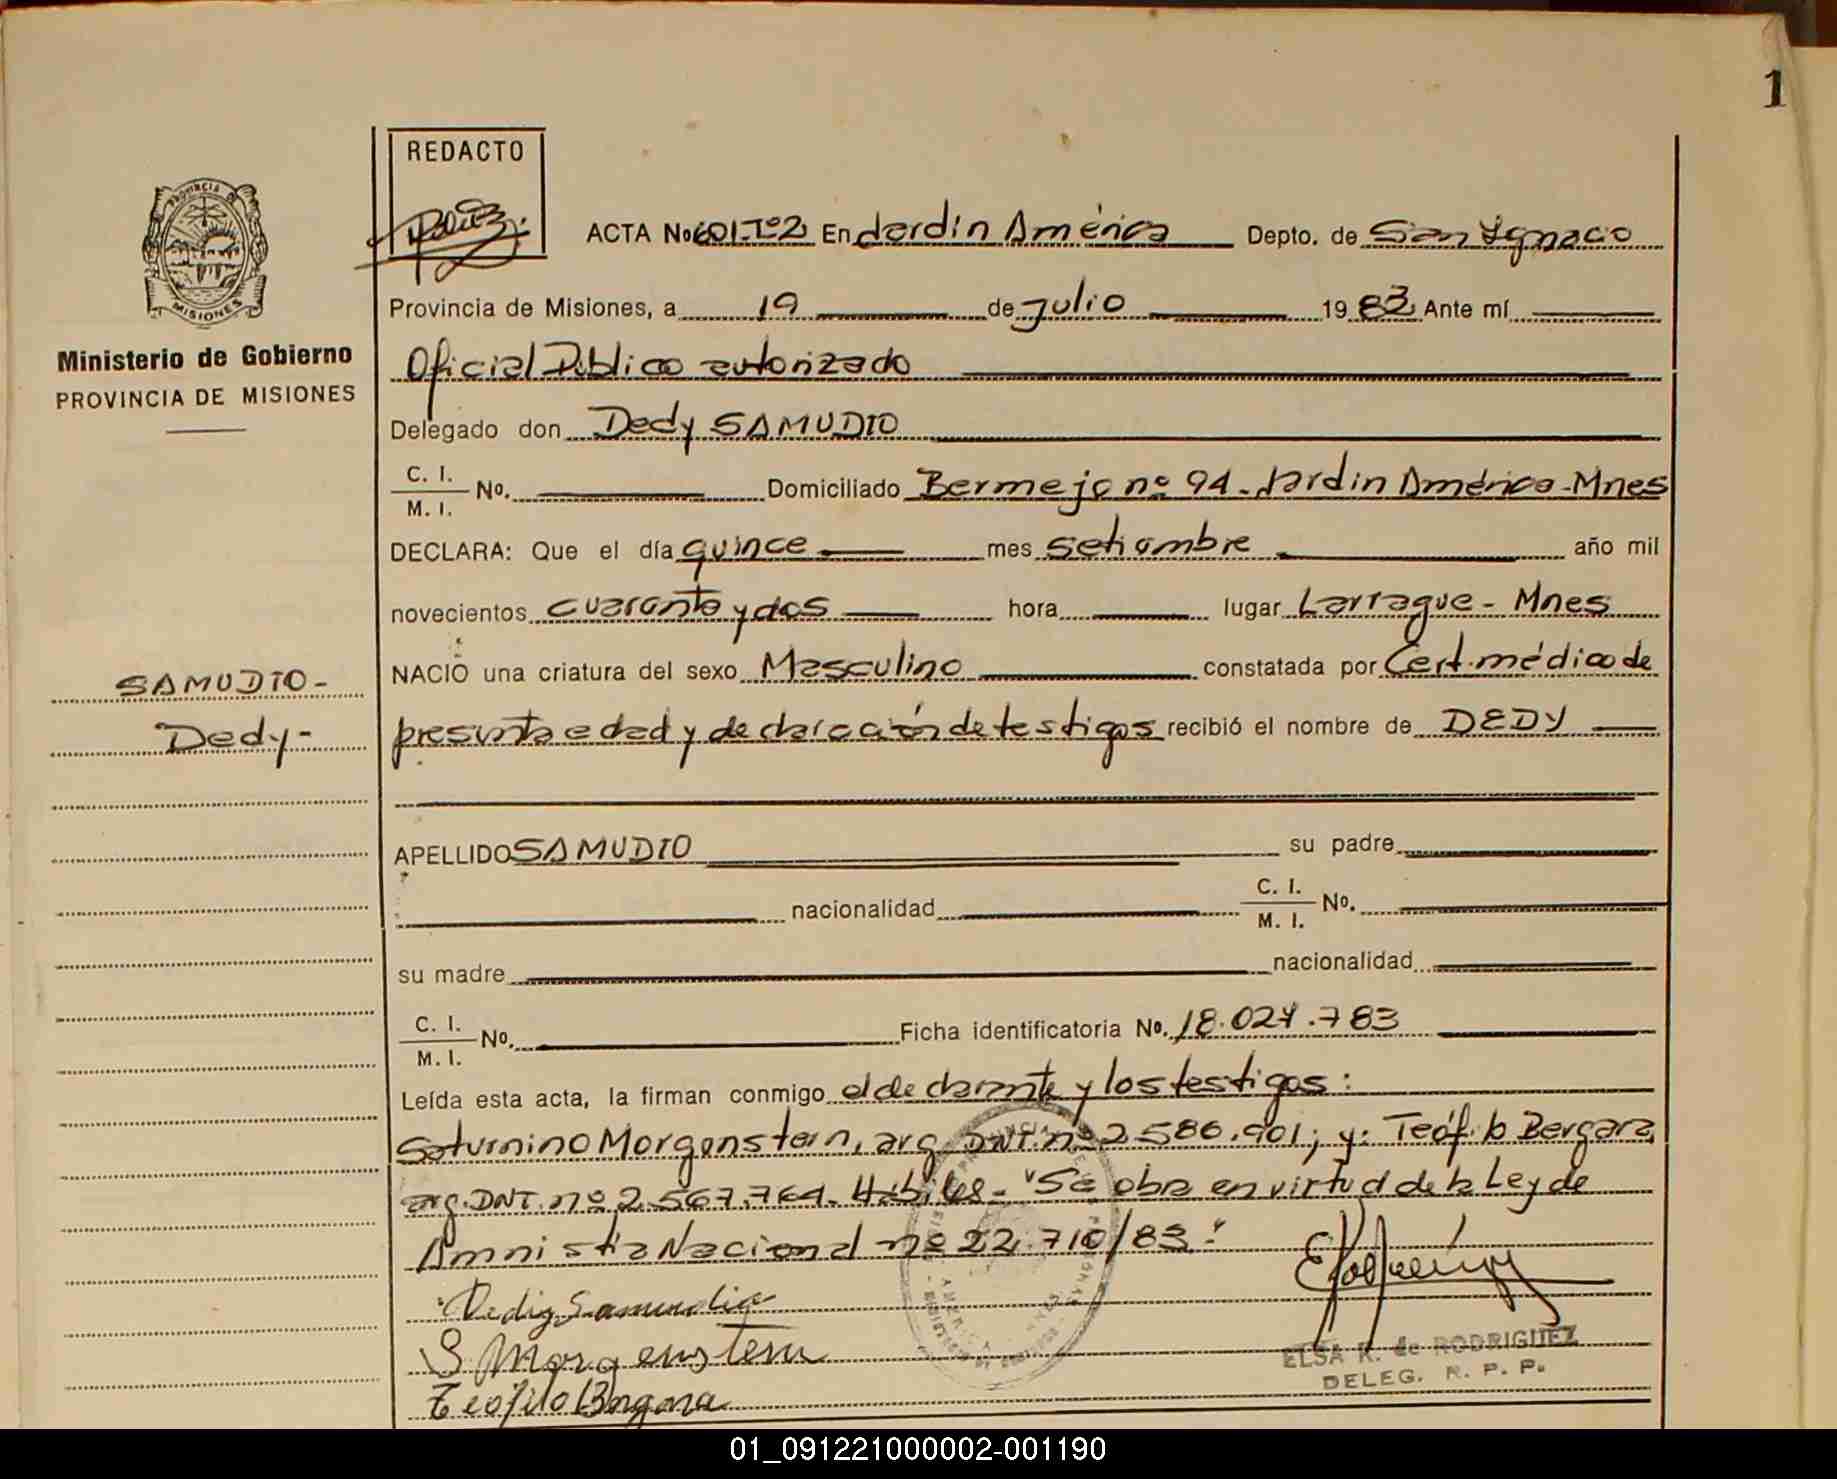 1
REDACTO
PROVINCIA DE
MISIONES
ACTA No 601-Tº2 En Jardín América Depto. de San Ygnacio
Provincia de Misiones, a 19 de Julio 1983 Ante mí
Ministerio de Gobierno
PROVINCIA DE MISIONES
Oficial Público autorizado
Delegado don Dedy SAMUDIO
C. I.
M. I. No. Domiciliado Bermejo nº 94 - Jardín América - Mnes
DECLARA: Que el día quince mes setiembre año mil
novecientos cuarenta y dos hora lugar Larrague - Mnes
NACIO una criatura del sexo Masculino constatada por Cert. médico de
SAMUDIO-
Dedy-
presunta edad y declaración de testigos recibió el nombre de DEDY
APELLIDO SAMUDIO su padre
nacionalidad C. I.
M. I. No.
su madre nacionalidad
C. I.
M. I. No. Ficha identificatoria No. 18.027.783
Leída esta acta, la firman conmigo el declarante y los testigos:
Saturnino Morgenstern, arg. DNI. nº 2.586.901; y: Teófilo Bergara,
arg. DNI. nº 2.567.764. Hábiles - "Se obra en virtud de la Ley de
Amnistía Nacional nº 22.710/83."
Dedy Samudio
S Morgenstern
Teofilo Bergara
ELSA K. de RODRIGUEZ
DELEG. R. P. P.
01_091221000002-001190